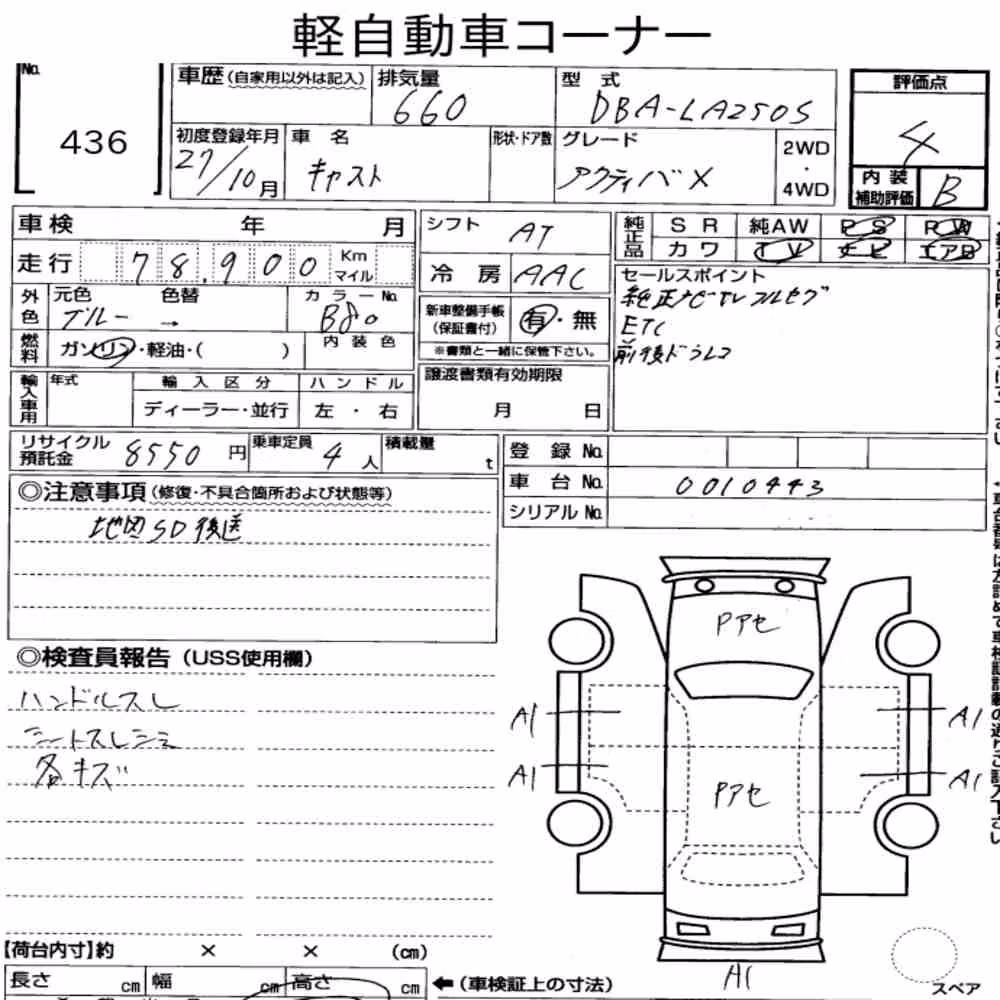 軽自動車コーナー
No. 436
車歴 (自家用以外は記入)
排気量 660
型式 DBA-LA250S
評価点 4
初度登録年月 27/10月
車名 キャスト
形状・ドア数
グレード アクティバX
2WD・4WD
内装補助評価 B
車検 年 月
シフト AT
純正品 SR 純AW PS PW
カワ TV ナビ エアB
走行 78,900 Km マイル
冷房 AAC
セールスポイント
純正ナビTVフルセグ
ETC
前後ドラレコ
外色 元色 ブルー 色替 → カラーNo. B80
新車整備手帳(保証書付) 有・無
※書類と一緒に保管下さい。
燃料 ガソリン・軽油・( ) 内装色
輸入車用 年式 輸入区分 ハンドル
ディーラー・並行 左・右
譲渡書類有効期限
月 日
リサイクル預託金 8550円 乗車定員 4人 積載量 t
登録No.
車台No. 0010443
シリアルNo.
◎注意事項 (修復・不具合箇所および状態等)
地図SD後送
◎検査員報告 (USS使用欄)
ハンドルスレ
シートスレシミ
各キズ
Pアセ
A1 A1
A1 A1
Pアセ
A1
スペア
【荷台内寸】約 × × (cm)
長さ cm 幅 cm 高さ cm ←(車検証上の寸法)